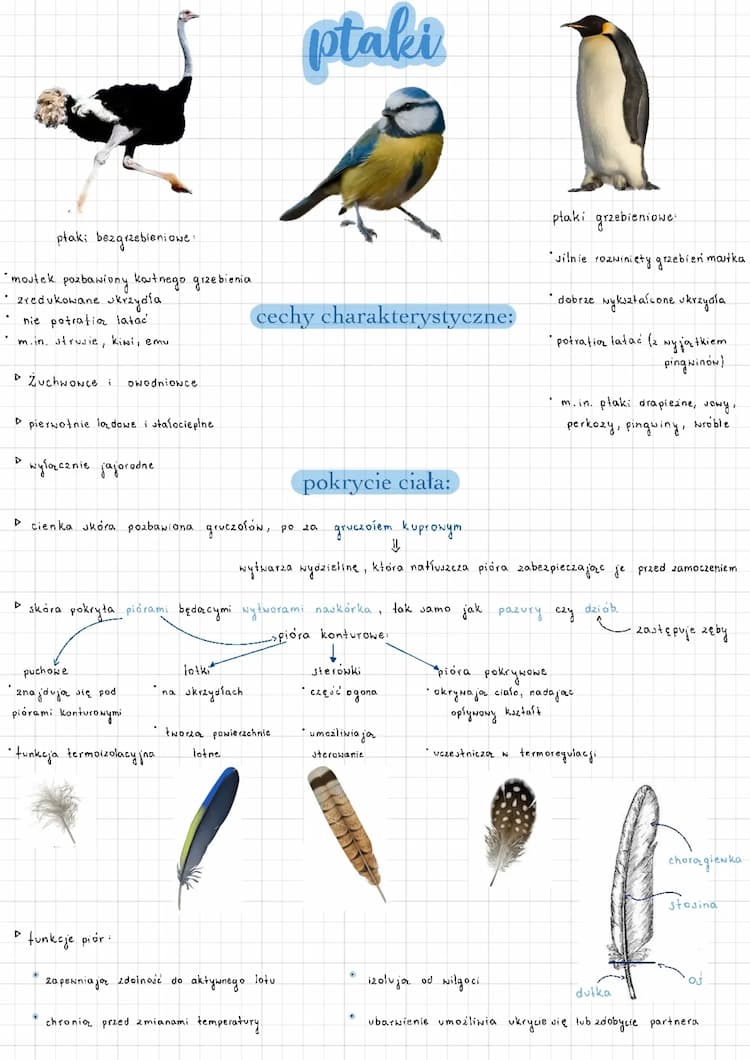 ptaki
ptaki bezgrzebieniowe:
• mostek pozbawiony kostnego grzebienia
• zredukowane skrzydła
• nie potrafią latać
• m.in. strusie, kiwi, emu
ptaki grzebieniowe:
• silnie rozwinięty grzebień mostka
• dobrze wykształcone skrzydła
• potrafią latać (z wyjątkiem
pingwinów)
• m.in. ptaki drapieżne, sowy,
perkozy, pingwiny, wróble
cechy charakterystyczne:
▷ Żuchwowce i owodniowce
▷ pierwotnie lądowe i stałocieplne
▷ wyłącznie jajorodne
pokrycie ciała:
▷ cienka skóra pozbawiona gruczołów, po za gruczołem kuprowym
⇓
wytwarza wydzielinę, która natłuszcza pióra zabezpieczając je przed zamoczeniem
▷ skóra pokryta piórami będącymi wytworami naskórka, tak samo jak pazury czy dziób
zastępuje zęby
pióra konturowe:
puchowe
• znajdują się pod
piórami konturowymi
• funkcja termoizolacyjna
lotki
• na skrzydłach
• tworzą powierzchnie
lotne
sterówki
• część ogona
• umożliwiają
sterowanie
pióra pokrywowe
• okrywają ciało, nadając
opływowy kształt
• uczestniczą w termoregulacji
chorągiewka
stosina
oś
dutka
▷ funkcje piór:
• zapewniają zdolność do aktywnego lotu
• chronią przed zmianami temperatury
• izolują od wilgoci
• ubarwienie umożliwia ukrycie się lub zdobycie partnera